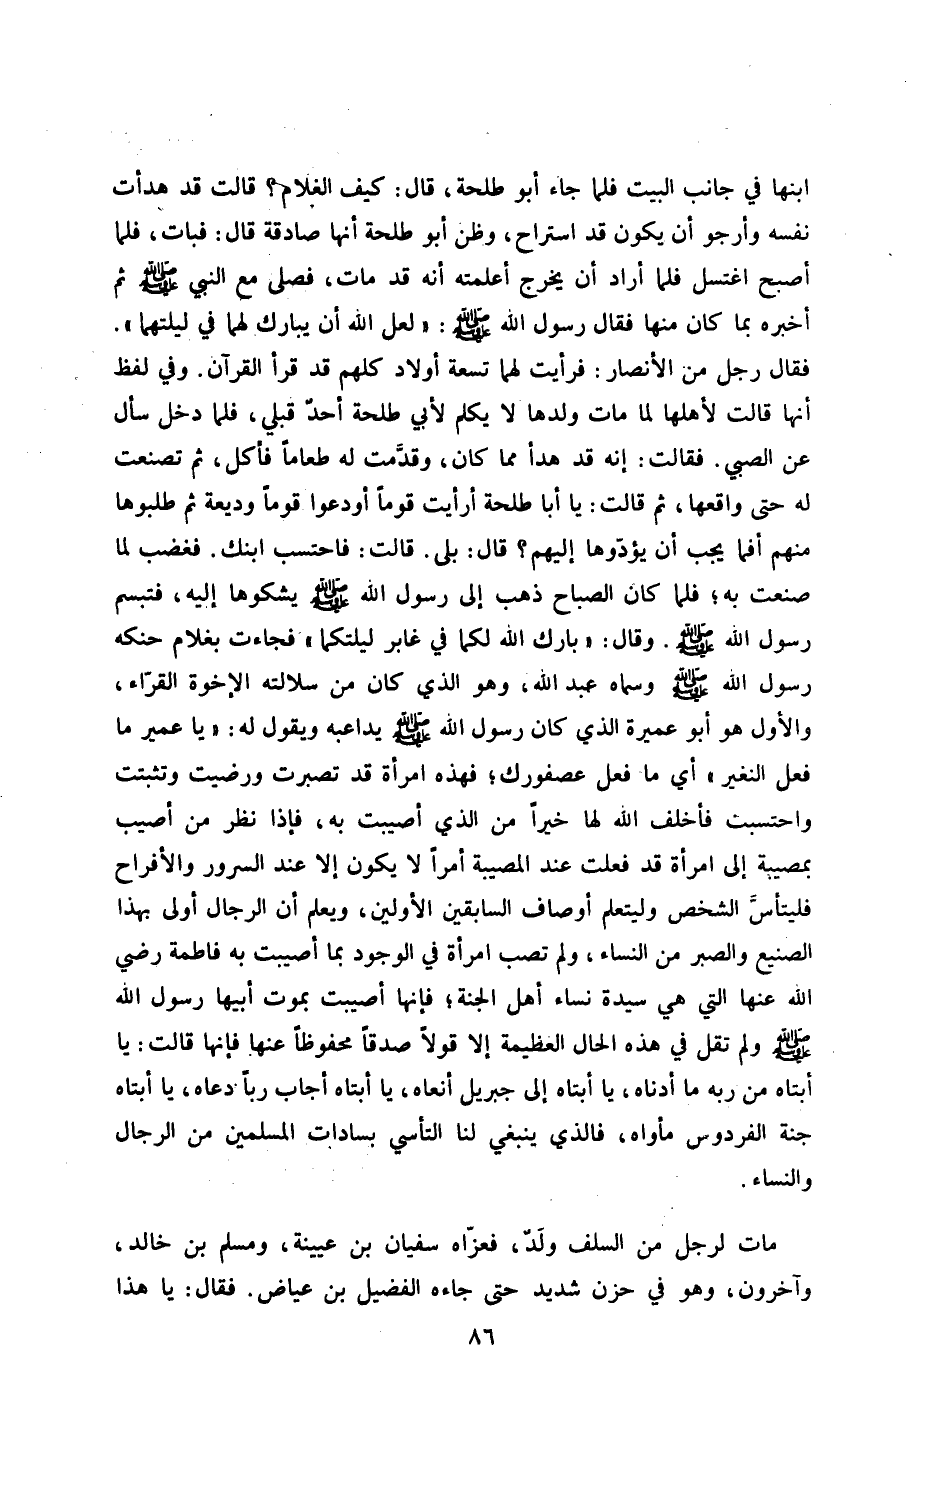 ابنها في جانب البيت فلما جاء أبو طلحة، قال: كيف الغلام؟ قالت قد هدأت
نفسه وأرجو أن يكون قد استراح، وظن أبو طلحة أنها صادقة قال: فبات، فلما
أصبح اغتسل فلما أراد أن يخرج أعلمته أنه قد مات، فصلى مع النبي ﷺ ثم
أخبره بما كان منها فقال رسول الله ﷺ: «لعل الله أن يبارك لهما في ليلتهما».
فقال رجل من الأنصار: فرأيت لهما تسعة أولاد كلهم قد قرأ القرآن. وفي لفظ
أنها قالت لأهلها لما مات ولدها لا يكلم لأبي طلحة أحدّ قبلي، فلما دخل سأل
عن الصبي. فقالت: إنه قد هدأ مما كان، وقدَّمت له طعاماً فأكل، ثم تصنعت
له حتى واقعها، ثم قالت: يا أبا طلحة أرأيت قوماً أودعوا قوماً وديعة ثم طلبوها
منهم أفما يجب أن يؤدّوها إليهم؟ قال: بلى. قالت: فاحتسب ابنك. فغضب لما
صنعت به؛ فلما كان الصباح ذهب إلى رسول الله ﷺ يشكوها إليه، فتبسم
رسول الله ﷺ. وقال: «بارك الله لكما في غابر ليلتكما» فجاءت بغلام حنكه
رسول الله ﷺ وسماه عبد الله، وهو الذي كان من سلالته الإخوة القرّاء،
والأول هو أبو عميرة الذي كان رسول الله ﷺ يداعبه ويقول له: «يا عمير ما
فعل النغير» أي ما فعل عصفورك؛ فهذه امرأة قد تصبرت ورضيت وتثبتت
واحتسبت فأخلف الله لها خيراً من الذي أصيبت به، فإذا نظر من أصيب
بمصيبة إلى امرأة قد فعلت عند المصيبة أمراً لا يكون إلا عند السرور والأفراح
فليتأسَّ الشخص وليتعلم أوصاف السابقين الأولين، ويعلم أن الرجال أولى بهذا
الصنيع والصبر من النساء، ولم تصب امرأة في الوجود بما أصيبت به فاطمة رضي
الله عنها التي هي سيدة نساء أهل الجنة؛ فإنها أصيبت بموت أبيها رسول الله
ﷺ ولم تقل في هذه الحال العظيمة إلا قولاً صدقاً محفوظاً عنها فإنها قالت: يا
أبتاه من ربه ما أدناه، يا أبتاه إلى جبريل أنعاه، يا أبتاه أجاب رباً دعاه، يا أبتاه
جنة الفردوس مأواه، فالذي ينبغي لنا التأسي بسادات المسلمين من الرجال
والنساء.
مات لرجل من السلف ولَدّ، فعزّاه سفيان بن عيينة، ومسلم بن خالد،
وآخرون، وهو في حزن شديد حتى جاءه الفضيل بن عياض. فقال: يا هذا
٨٦